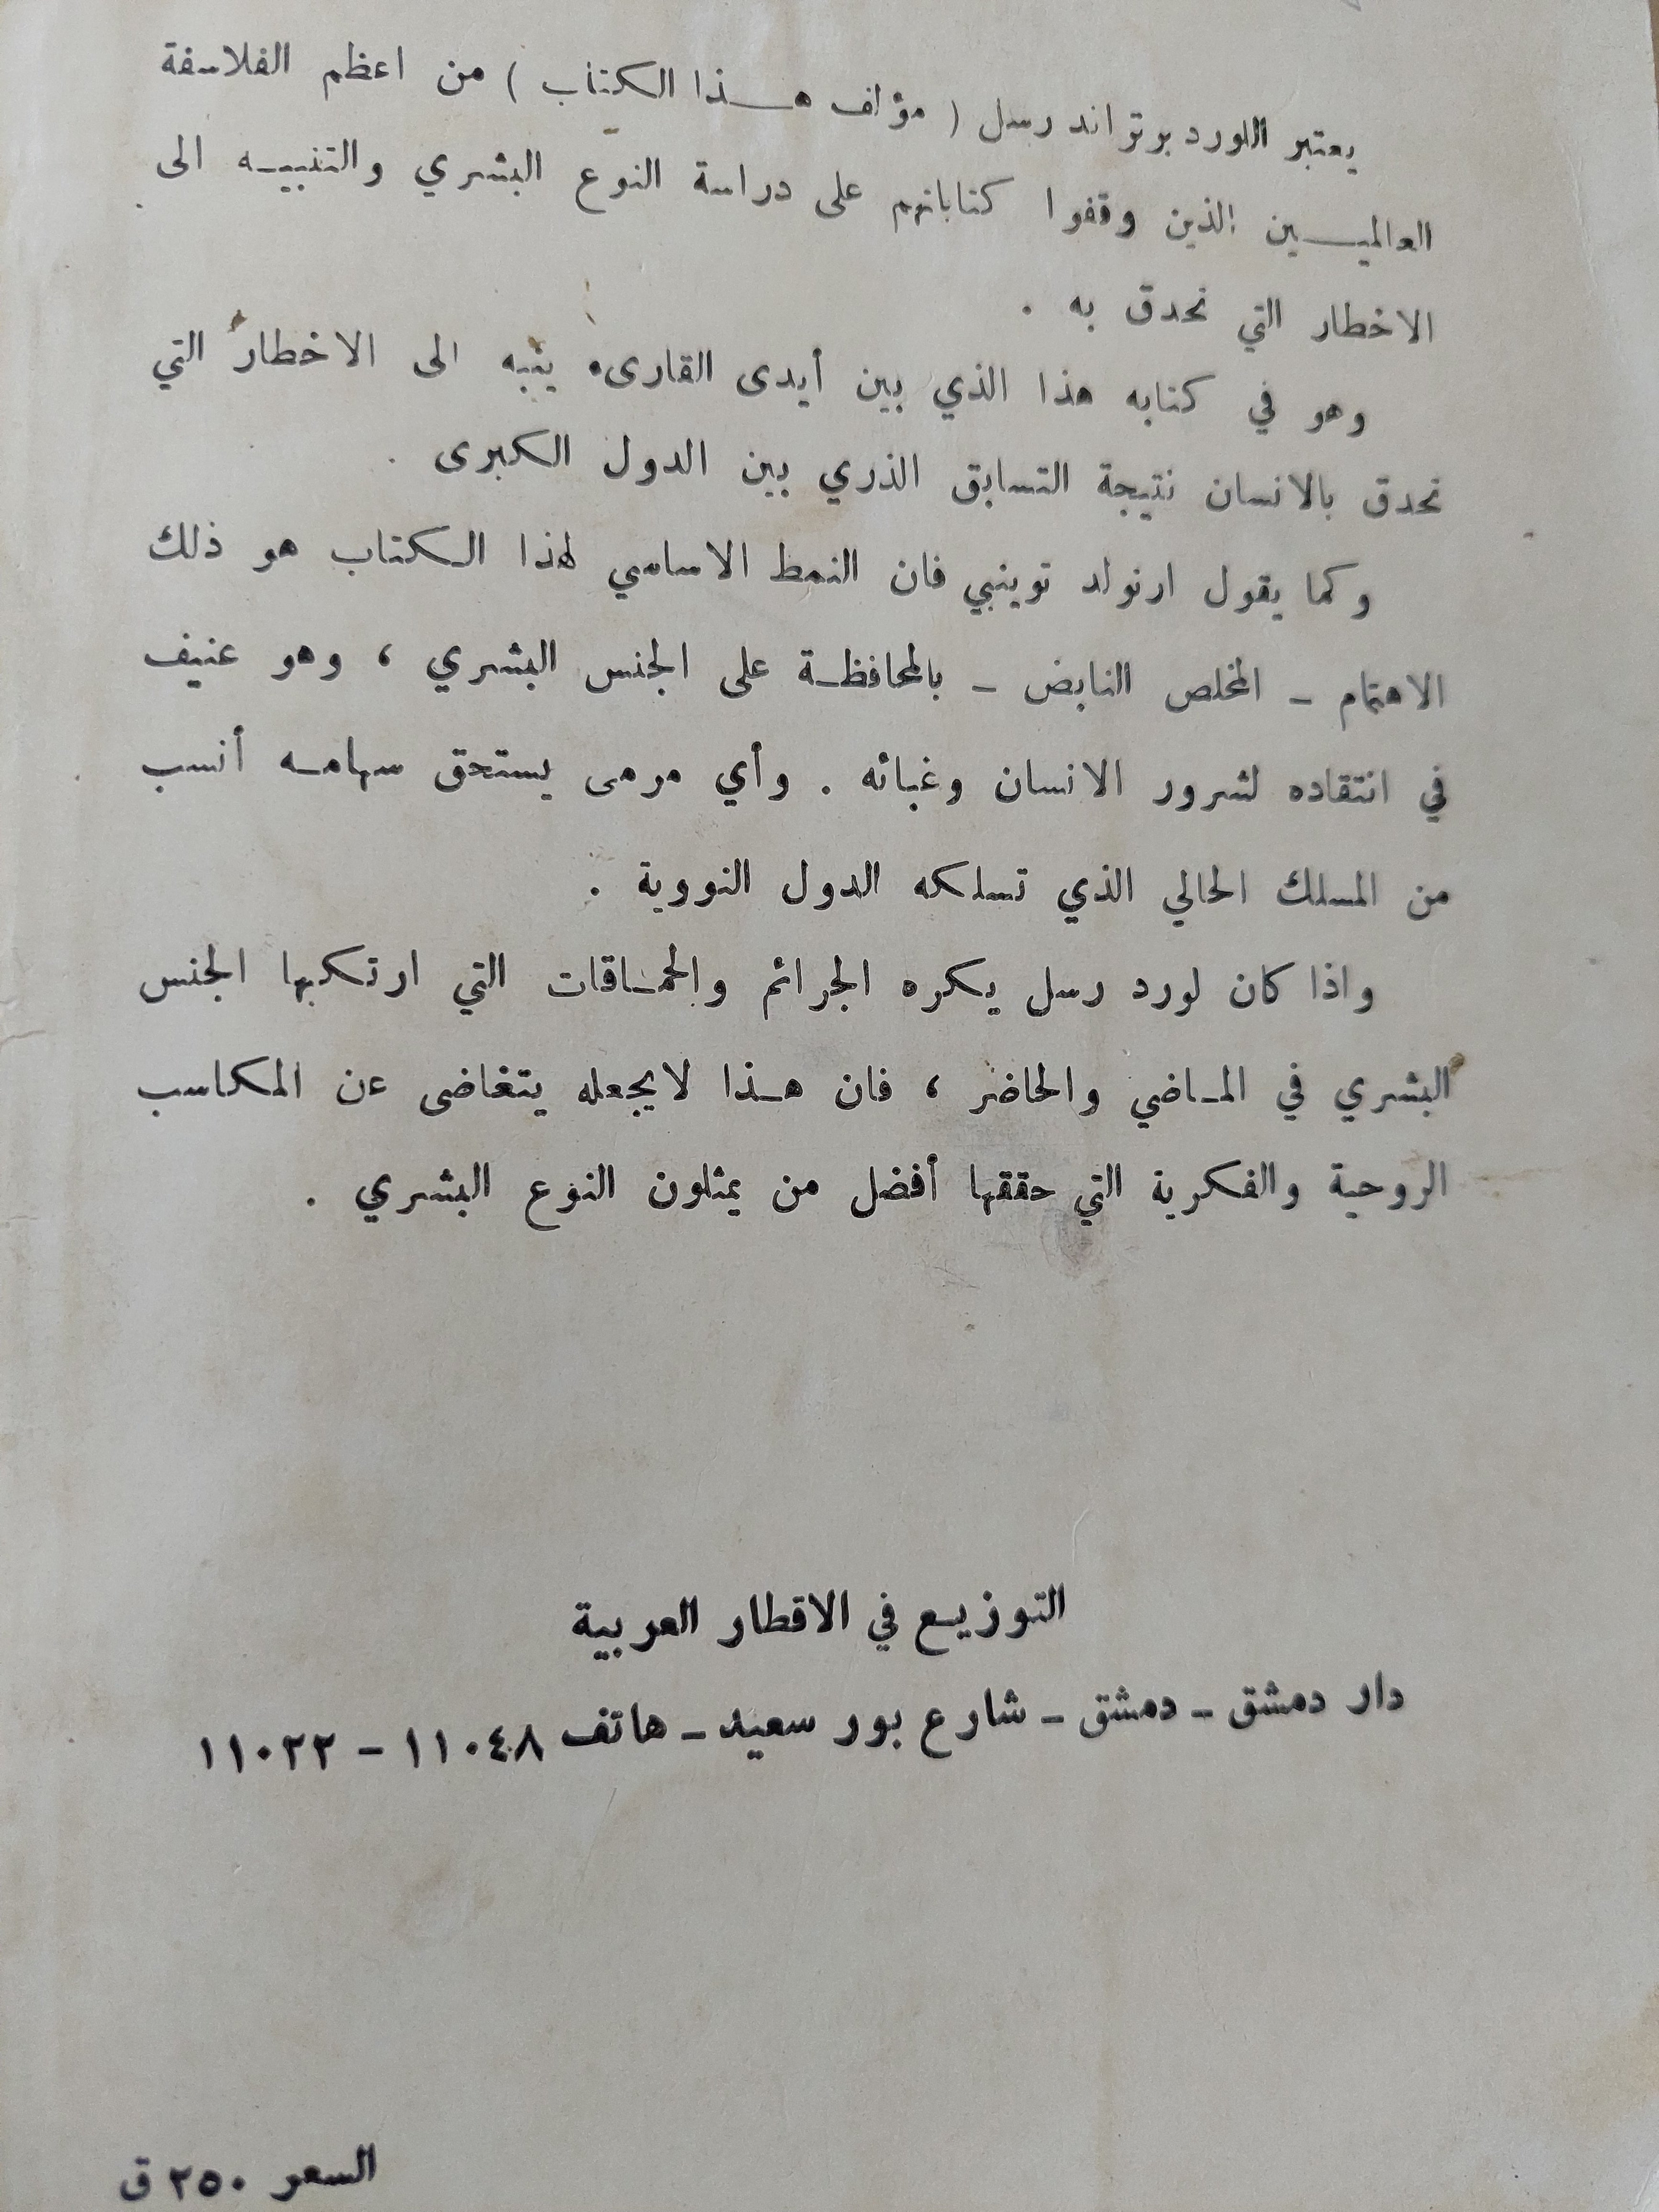 يعتبر اللورد برتراند رسل ( مؤلف هـذا الكتاب ) من اعظم الفلاسفة
العالميـين الذين وقفوا كتاباتهم على دراسة النوع البشري والتنبيـه الى
الاخطار التي تحدق به .
وهو في كتابه هذا الذي بين أيدى القارىء ينبه الى الاخطار التي
تحدق بالانسان نتيجة التسابق الذري بين الدول الكبرى .
وكما يقول ارنولد توينبي فان النمط الاساسي لهذا الكتاب هو ذلك
الاهتمام – المخلص النابض – بالمحافظـة على الجنس البشري ، وهو عنيف
في انتقاده لشرور الانسان وغبائه . وأي مرمى يستحق سهامـه أنسب
من المسلك الحالي الذي تسلكه الدول النووية .
واذا كان لورد رسل يكره الجرائم والحمـاقات التي ارتكبها الجنس
البشري في المـاضي والحاضر ، فان هـذا لايجعله يتغاضى عن المكاسب
الروحية والفكرية التي حققها أفضل من يمثلون النوع البشري .
التوزيـع في الاقطار العربية
دار دمشق – دمشق – شارع بور سعيد – هاتف ١١٠٤٨ – ١١٠٢٢
السعر ٢٥٠ ق